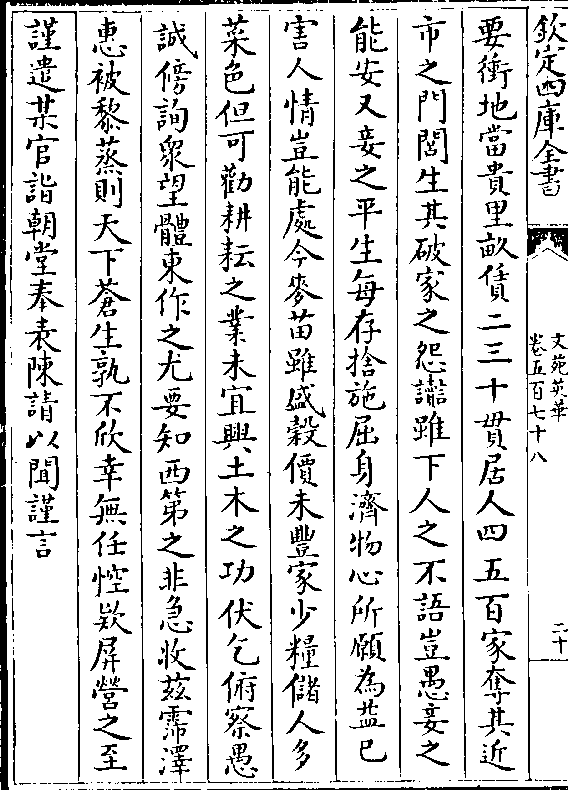 欽定四庫全書
文苑英華
卷五百七十八
二十
要衝地當貴里畝賃二三十貫居人四五百家奪其近
市之門閭生其破家之怨讟雖下人之不語豈愚妾之
能安又妾之平生每存捨施屈身濟物心所願為益已
害人情豈能處今麥苗雖盛穀價未豐家少糧儲人多
菜色但可勸耕耘之業未宜興土木之功伏乞俯察愚
誠傍詢衆望體東作之尤要知西第之非急收兹霈澤
惠被黎蒸則天下蒼生孰不欣幸無任悾欵屏營之至
謹遣某官詣朝堂奉表陳請以聞謹言